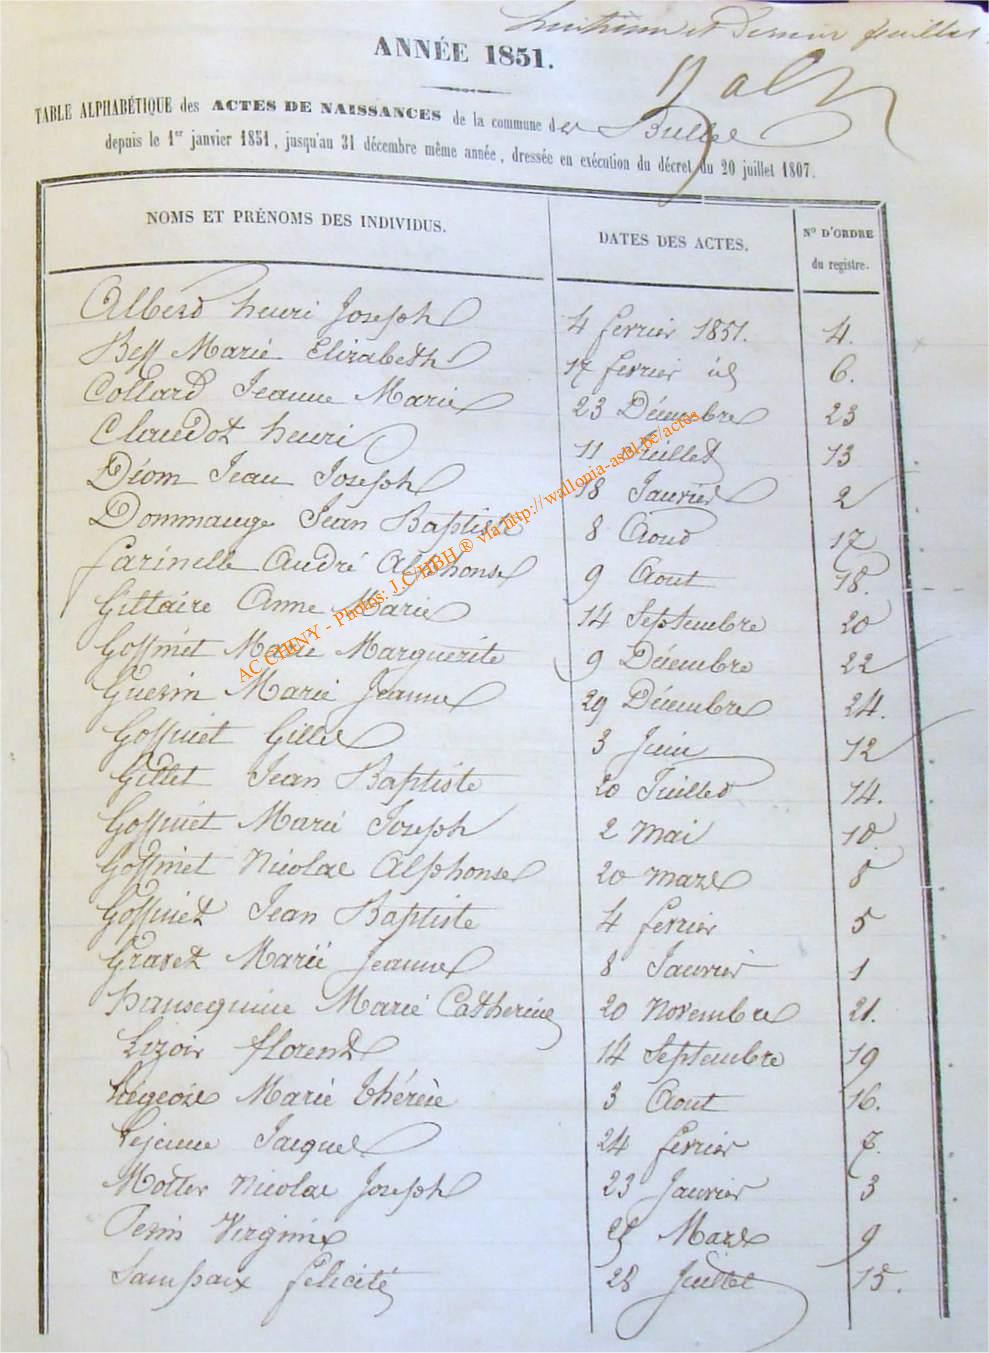 huitième et Dernier feuillet
ANNÉE 1851.
TABLE ALPHABÉTIQUE des ACTES DE NAISSANCES de la commune de
depuis le 1er janvier 1851, jusqu'au 31 décembre même année, dressée en exécution du décret du 20 juillet 1807.
NOMS ET PRÉNOMS DES INDIVIDUS. DATES DES ACTES. N° D'ORDRE du registre.
henri Joseph 4 fevrier 1851. 4.
Marie Elizabeth 17 fevrier id 6.
Collard Jeanne Marie 23 Décembre 23
Claudot henri 11 Juillet 13
Diom Jean Joseph 18 Janvier 2
Dommange Jean Baptiste 8 Aout 17
farinelle André Alphonse 9 Aout 18.
Giltaire Anne Marie 14 Septembre 20
Goffinet Marie Marguerite 9 Décembre 22
Guerin Marie Jeanne 29 Décembre 24.
Goffinet Gilles 3 Juin 12
Gillet Jean Baptiste 20 Juillet 14.
Goffinet Marie Joseph 2 Mai 10.
Goffinet Nicolas Alphonse 20 mars 8
Goffinet Jean Baptiste 4 fevrier 5
Gravet Marie Jeanne 8 Janvier 1
Hansequine Marie Catherine 20 Novembre 21.
Lizoir florent 14 Septembre 19
Liégeois Marie thérèse 3 Aout 16.
Lejeune Jacques 24 fevrier 7.
Motter Nicolas Joseph 23 Janvier 3
Perin Virginie 25 Mars 9
Sampaix felicité 28 Juillet 15.
AC CHINY - Photos: J.C/HBH ® via http://wallonia-asbl.be/actes